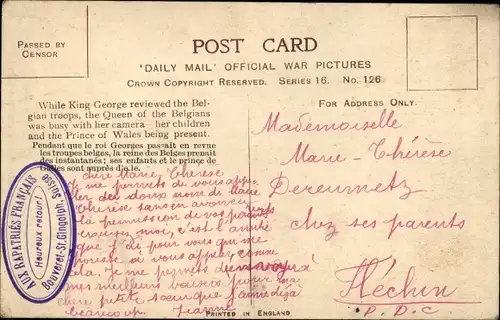 PASSED BY
CENSOR
POST CARD
'DAILY MAIL' OFFICIAL WAR PICTURES
CROWN COPYRIGHT RESERVED. SERIES 16. No. 126
While King George reviewed the Bel-
gian troops, the Queen of the Belgians
was busy with her camera—her children
and the Prince of Wales being present.
Pendant que le roi Georges passait en revue
les troupes belges, la reine des Belges prenait
des instantanés; ses enfants et le prince de
Galles sont auprès d'elle.
AUX RAPATRIÉS FRANÇAIS
Heureux retour!
Bouveret-St. Gingolph. Suisse
FOR ADDRESS ONLY.
Mademoiselle
Marie-Thérèse
chez ses parents
Fléchin
P. D. C
Marie Thérèse
je me permets de vous
des doux nom de
Thérèse sans en
la permission de vos parents
moi, c'est l'amitié
que j'ai pour vous qui me
à vous
cela. Je me permets
mes meilleurs baisers pour ma
chère petite sœur que j'aime déjà
beaucoup. Jeanne
PRINTED IN ENGLAND